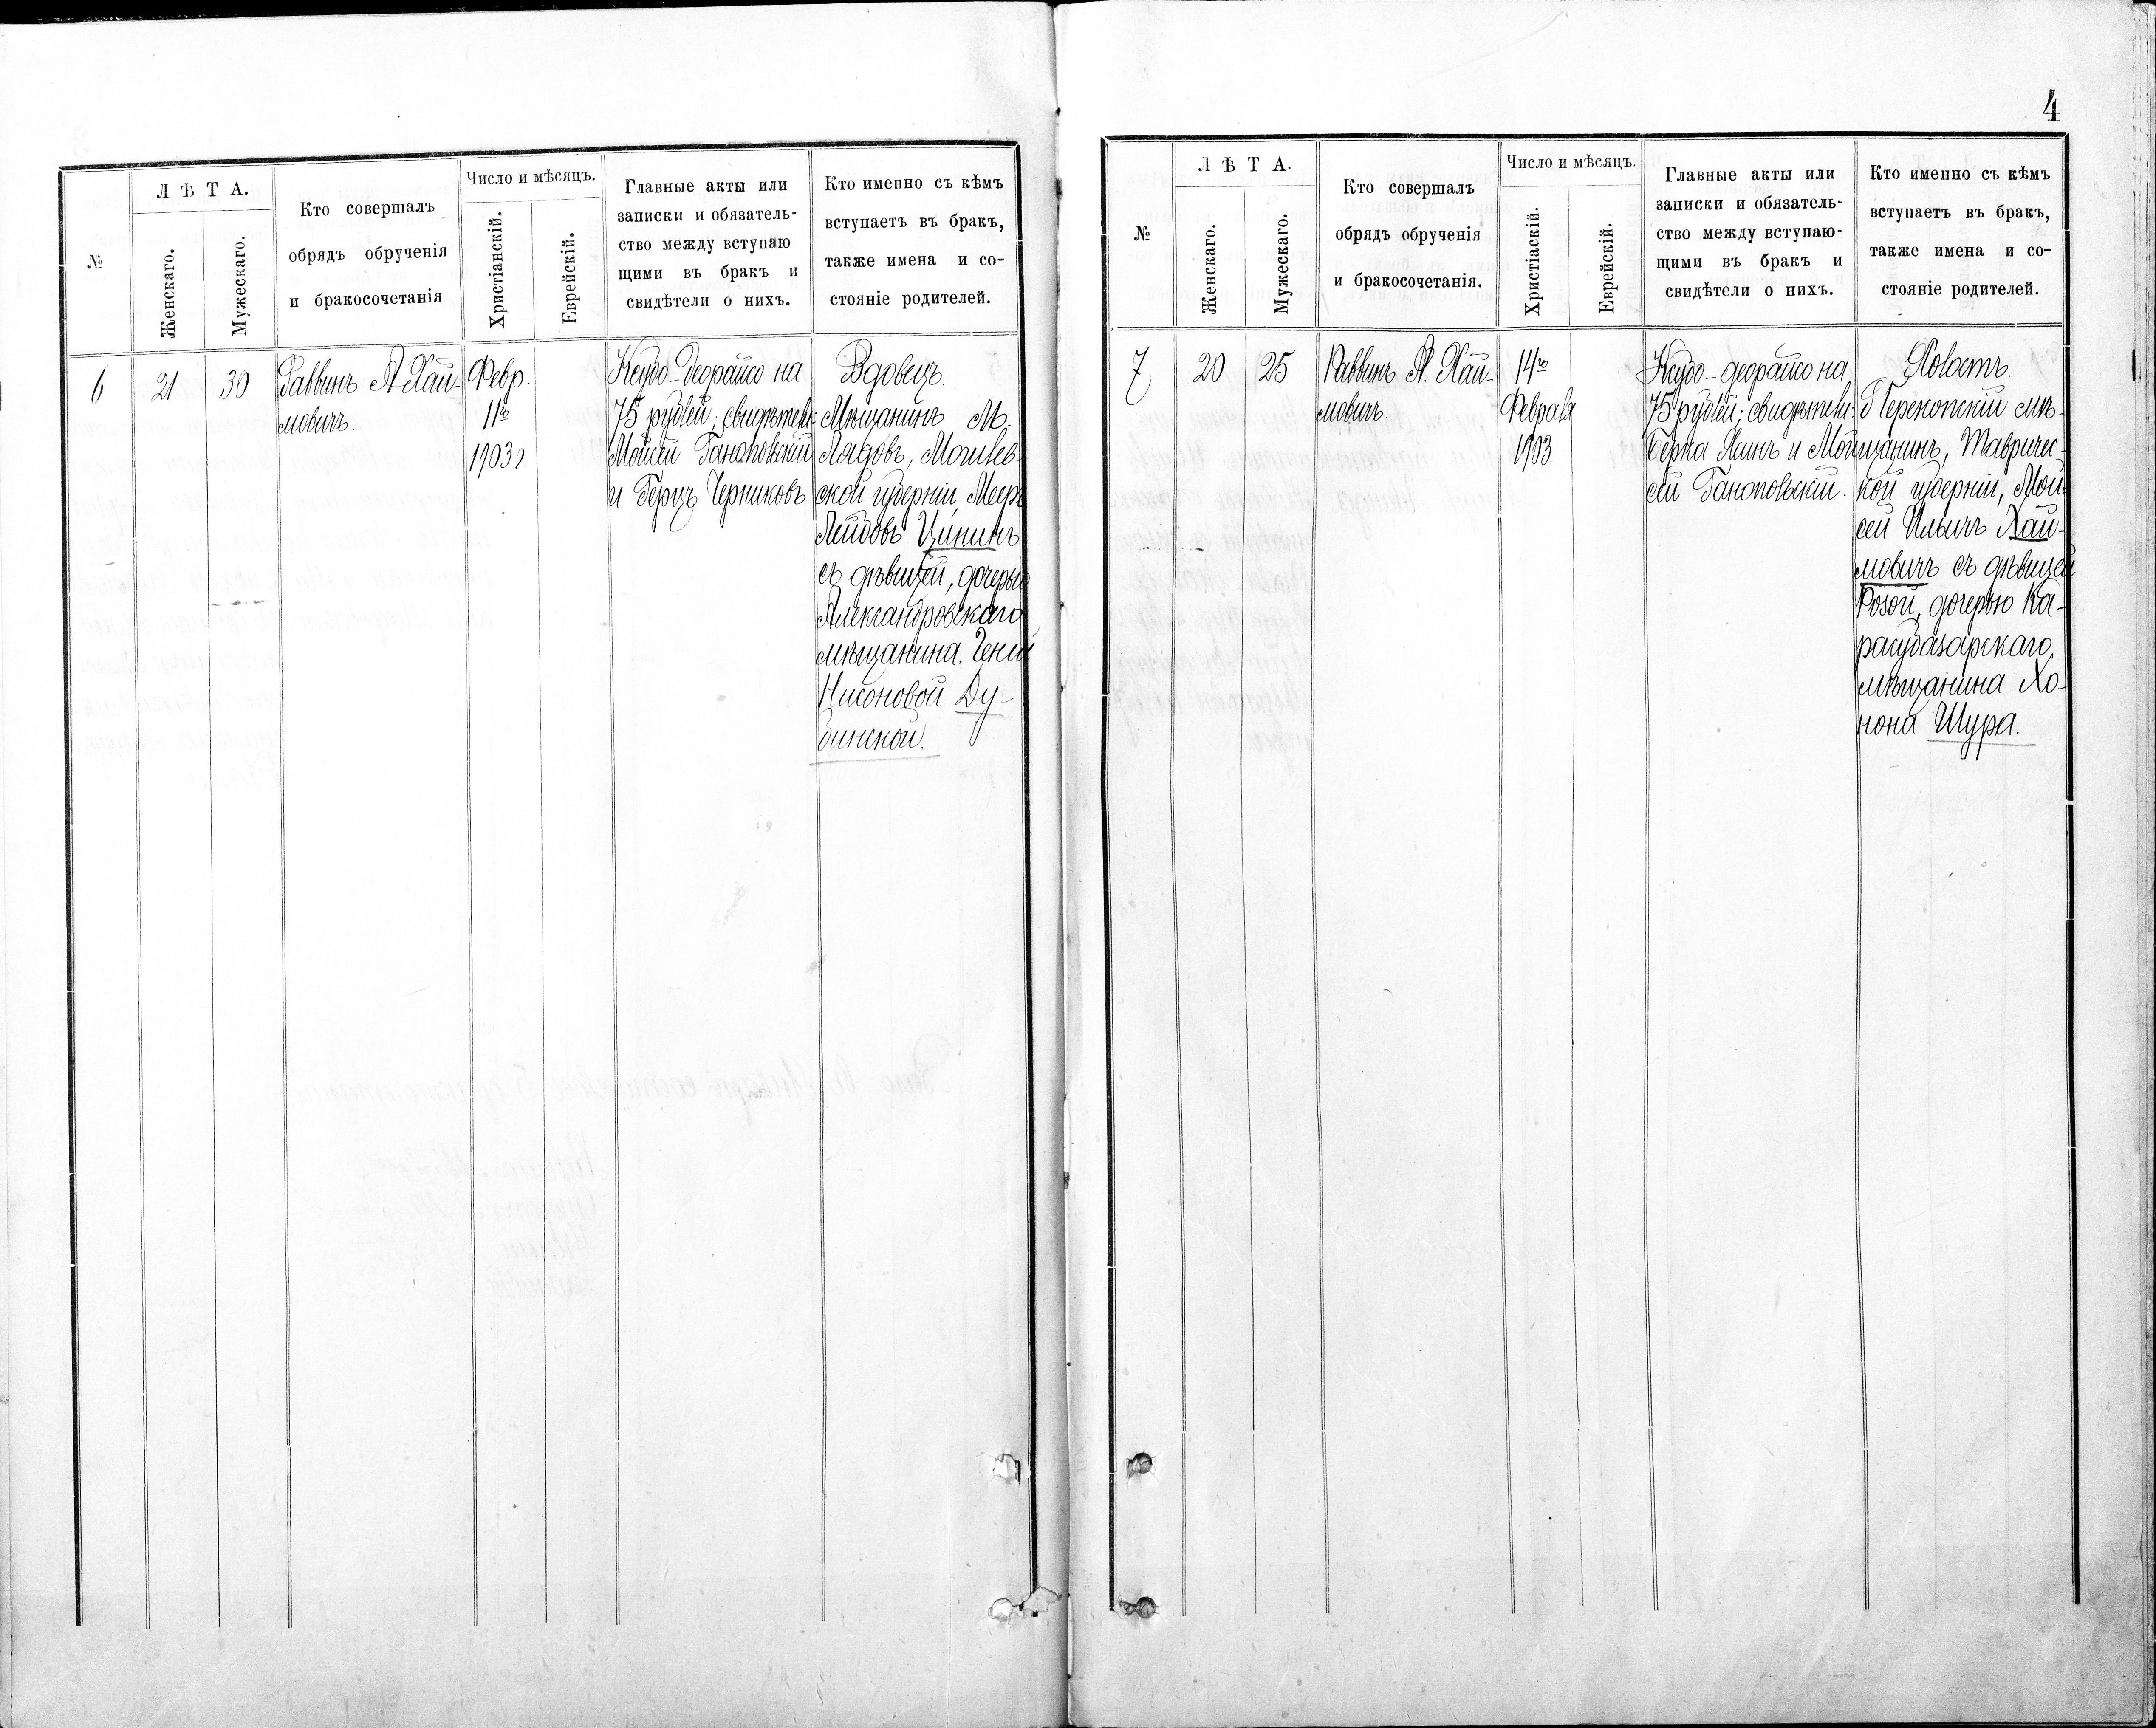 №
Л Ѣ Т А.
Женскаго.
Мужескаго.
Кто совершалъ
обрядъ обрученія
и бракосочетанія
Число и мѣсяцъ.
Христіанскій.
Еврейскій.
Главные акты или
записки и обязатель-
ство между вступаю
щими въ бракъ и
свидѣтели о нихъ.
Кто именно съ кѣмъ
вступаетъ въ бракъ,
также имена и со-
стояніе родителей.
6
21
30
Раввинъ А Хай-
мовичъ.
Февр.
11го
1903 г.
на
75 рублей; свидѣтели:
Мойсей Ганопольскій
и Герцъ Черниковъ
Вдовецъ.
Мѣщанинъ М.
Лядовъ, Могилев-
ской губерніи Мееръ
Лейбовъ Цининъ
съ дѣвицей, дочерью
Александровскаго
мѣщанина. Геней
Нисоновой Ду-
бинской.
4
№
Л Ѣ Т А.
Женскаго.
Мужескаго.
Кто совершалъ
обрядъ обрученія
и бракосочетанія.
Число и мѣсяцъ.
Христіаскій.
Еврейскій.
Главные акты или
записки и обязатель-
ство между вступаю-
щими въ бракъ и
свидѣтели о нихъ.
Кто именно съ кѣмъ
вступаетъ въ бракъ,
также имена и со-
стояніе родителей.
7
20
25
Раввинъ А. Хай-
мовичъ.
14го
Февраля
1903
на
75 рублей; свидѣтели:
Берка и Мой-
сей Ганопольскій.
Холостъ.
Перекопскій мѣ-
щанинъ, Тавричес-
кой губерніи, Мой-
сей Ильичъ Хай-
мовичъ съ дѣвицей
Розой, дочерью Ка-
расубазарскаго
мѣщанина Хо-
нона Шура.